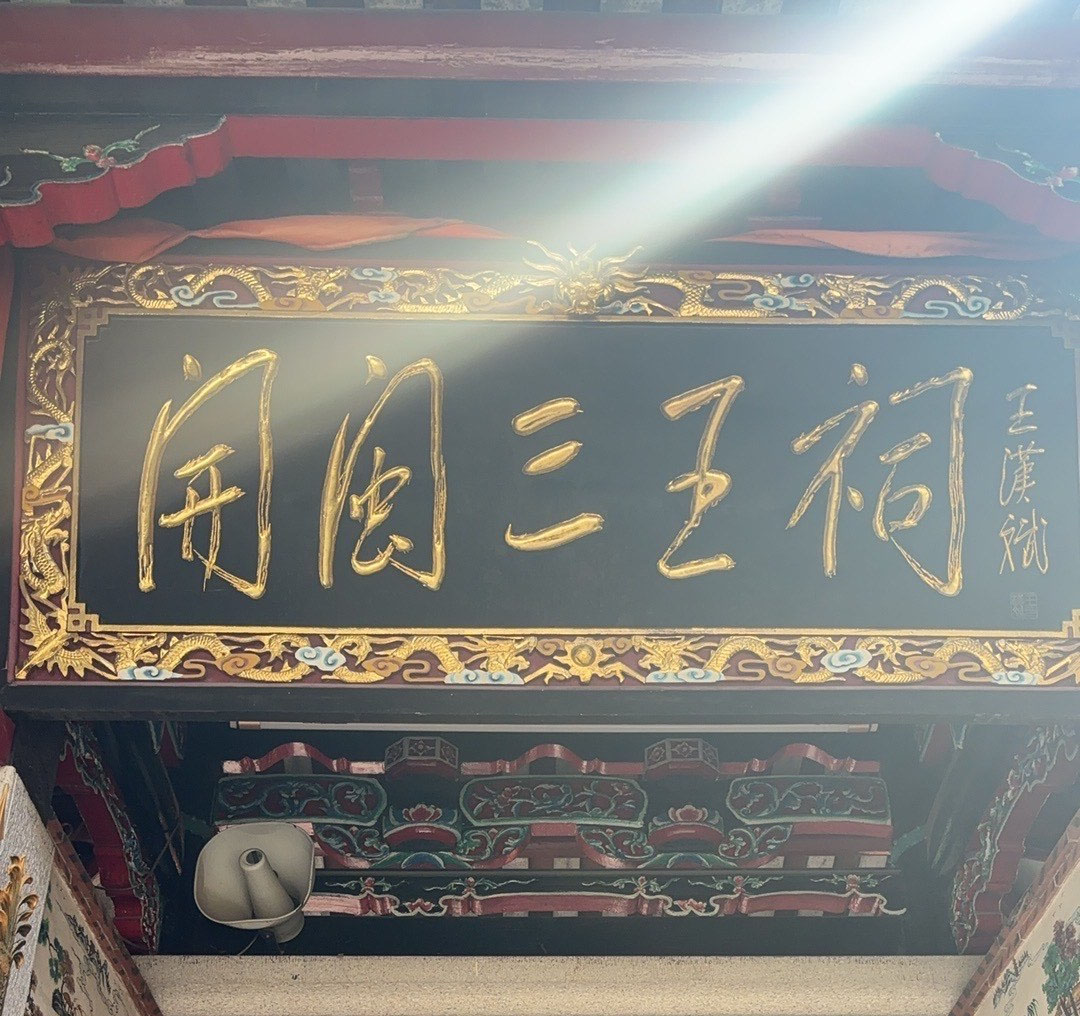 開闽三王祠
王漢斌